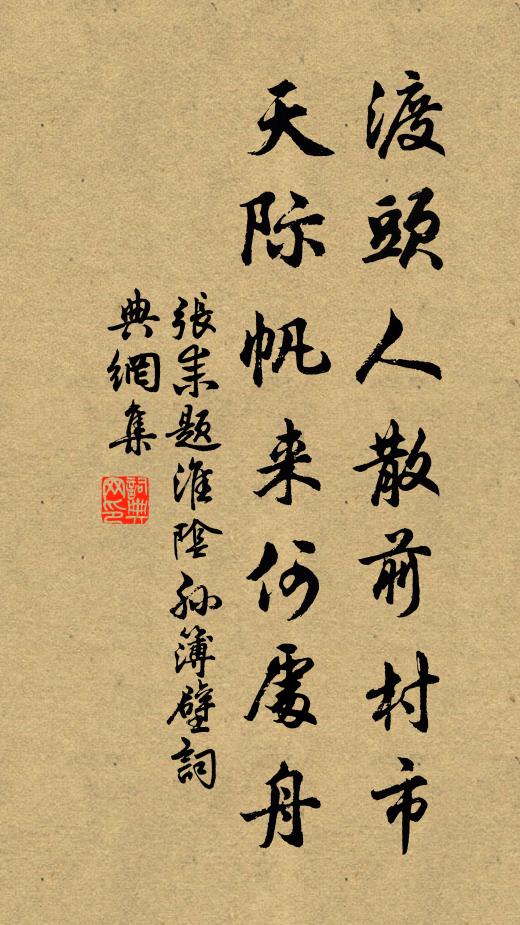 渡頭人散前村市
天际帆来何處舟
張耒题淮陰孙簿壁詞
典網集
詞典
网印